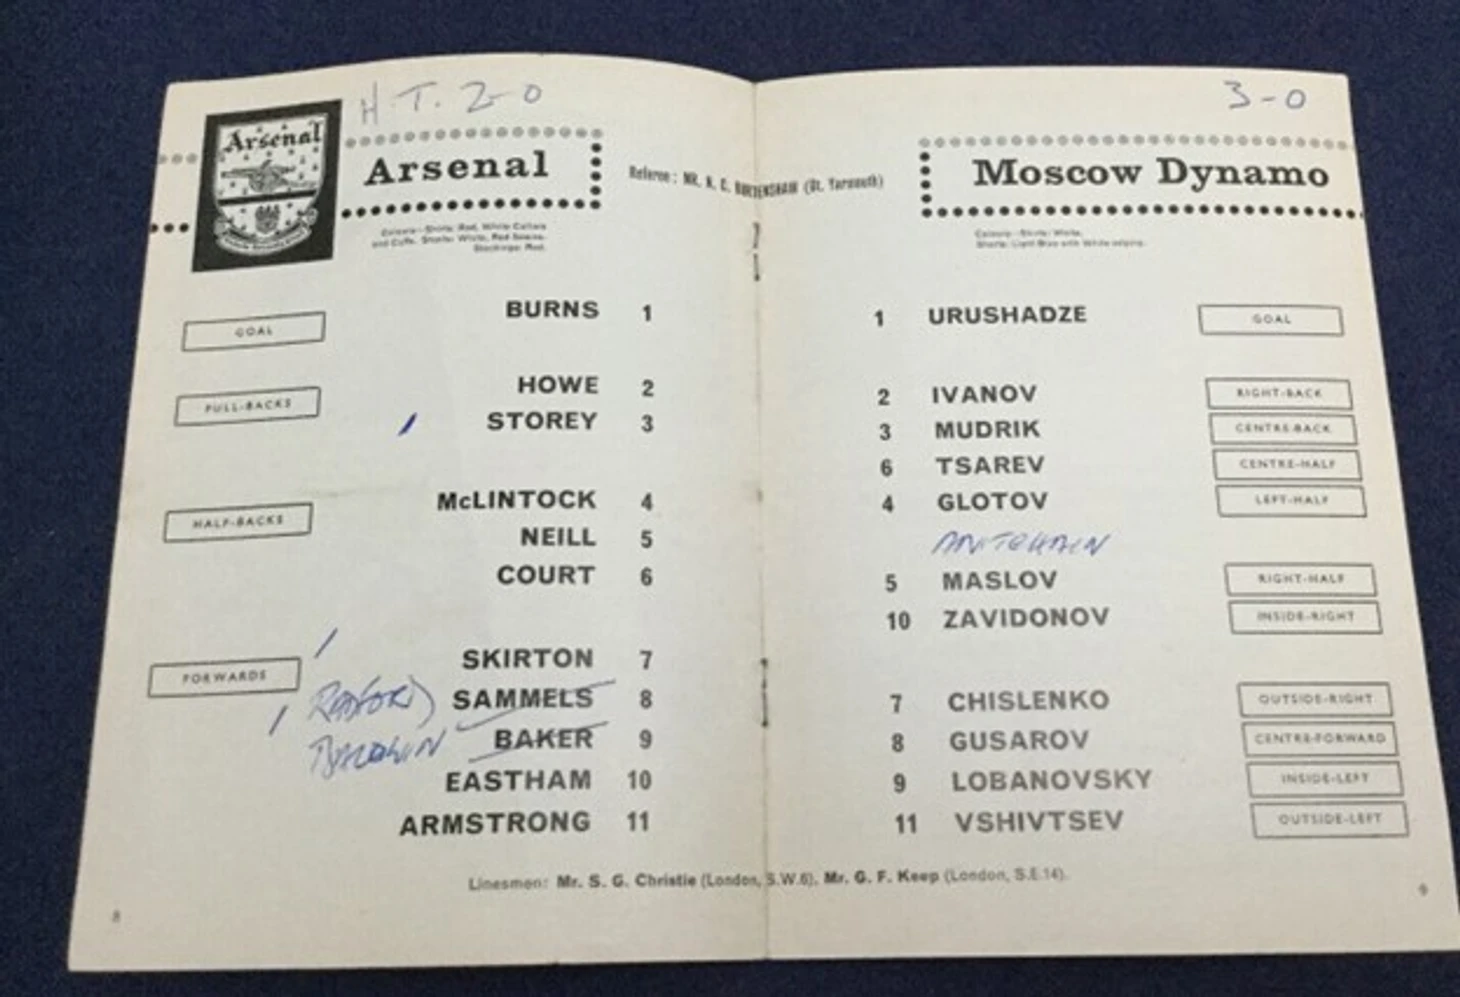 H.T. 2-0
3-0
Arsenal
Arsenal
Referee: MR. (Gt. Yarmouth)
Moscow Dynamo
Colours—Shirts: Red, White Collars
and Cuffs. Shorts: White, Red Seams.
Stockings: Red.
Colours—Shirts: White.
Shorts: Light Blue with White
GOAL
BURNS 1
1 URUSHADZE
GOAL
FULL-BACKS
HOWE 2
STOREY 3
2 IVANOV RIGHT-BACK
3 MUDRIK CENTRE-BACK
6 TSAREV CENTRE-HALF
4 GLOTOV LEFT-HALF
HALF-BACKS
McLINTOCK 4
NEILL 5
COURT 6
5 MASLOV RIGHT-HALF
10 ZAVIDONOV INSIDE-RIGHT
FORWARDS
SKIRTON 7
RADFORD SAMMELS 8
BALDWIN BAKER 9
EASTHAM 10
ARMSTRONG 11
7 CHISLENKO OUTSIDE-RIGHT
8 GUSAROV CENTRE-FORWARD
9 LOBANOVSKY INSIDE-LEFT
11 VSHIVTSEV OUTSIDE-LEFT
Linesmen: Mr. S. G. Christie (London, S.W.6), Mr. G. F. Keep (London, S.E.14).
8
9